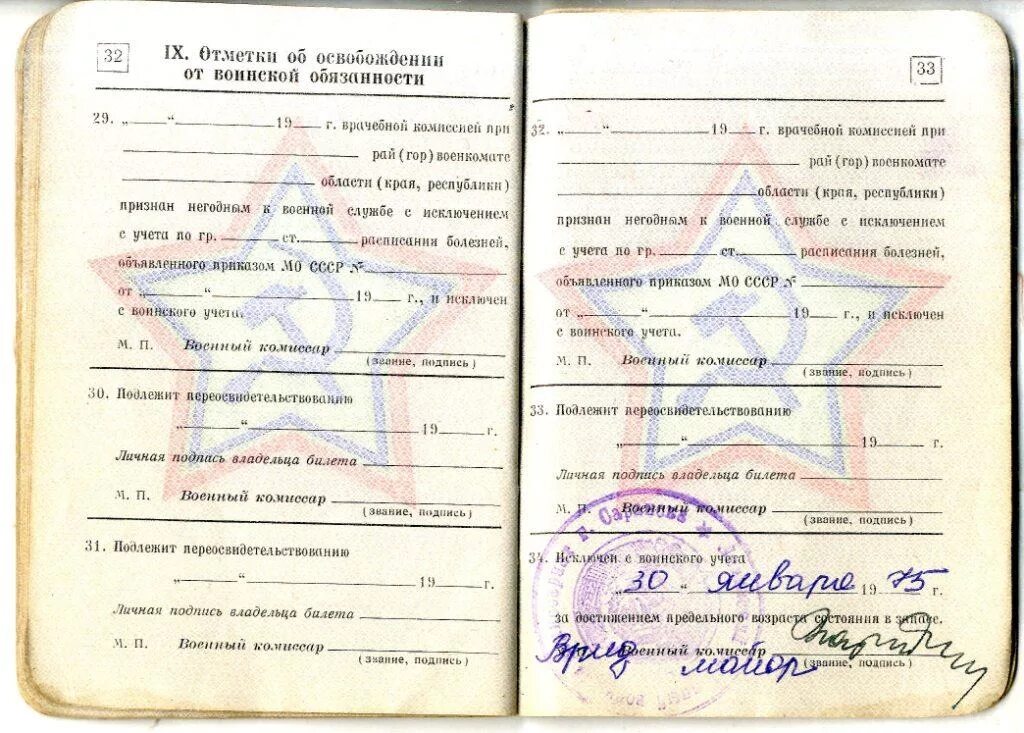 32
IX. Отметки об освобождении
от воинской обязанности
29. „____“____________19___ г. врачебной комиссией при
____________ рай (гор) военкомате
____________ области (края, республики)
признан негодным к военной службе с исключением
с учета по гр.______ ст.______ расписания болезней,
объявленного приказом МО СССР №____________
от „____“____________19___ г., и исключен
с воинского учета.
М. П. Военный комиссар ____________
(звание, подпись)
30. Подлежит переосвидетельствованию
„____“____________19___ г.
Личная подпись владельца билета ____________
М. П. Военный комиссар ____________
(звание, подпись)
31. Подлежит переосвидетельствованию
„____“____________19___ г.
Личная подпись владельца билета ____________
М. П. Военный комиссар ____________
(звание, подпись)
33
32. „____“____________19___ г. врачебной комиссией при
____________ рай (гор) военкомате
____________ области (края, республики)
признан негодным к военной службе с исключением
с учета по гр.______ ст.______ расписания болезней,
объявленного приказом МО СССР №____________
от „____“____________19___ г., и исключен
с воинского учета.
М. П. Военный комиссар ____________
(звание, подпись)
33. Подлежит переосвидетельствованию
„____“____________19___ г.
Личная подпись владельца билета ____________
М. П. Военный комиссар ____________
(звание, подпись)
34. Исключен с воинского учета
„30“ января 1975 г.
за достижением предельного возраста состояния в запасе.
Военный комиссар
Врид майор
(звание, подпись)
г. Саратова